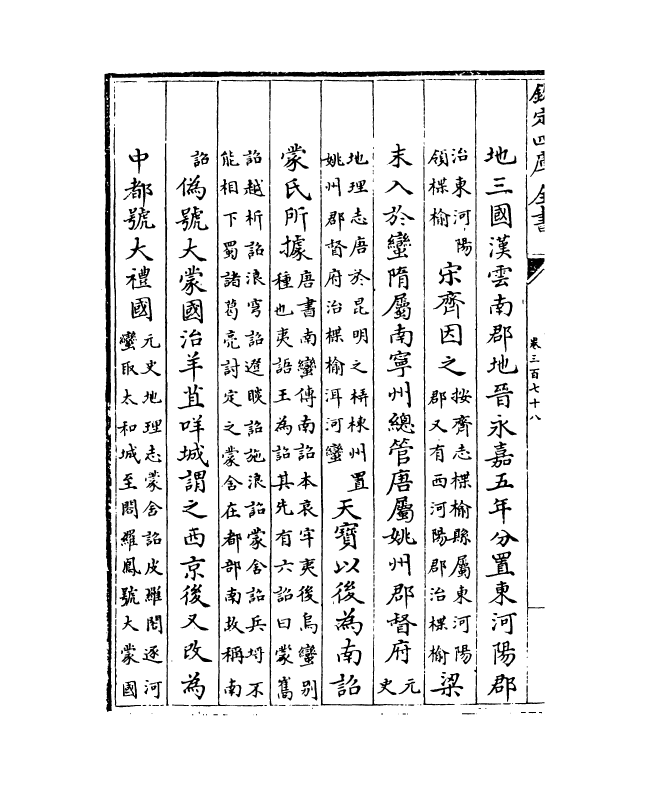 欽定四庫全書
卷三百七十八
地三國漢雲南郡地晉永嘉五年分置東河陽郡
治東河陽
領楪榆
宋齊因之
按齊志楪榆縣屬東河陽
郡又有西河陽郡治楪榆
梁
末入於蠻隋屬南寧州總管唐屬姚州郡督府
元
史
地理志唐於昆明之梇棟州置
姚州郡督府治楪榆洱河蠻
天寶以後為南詔
蒙氏所據
唐書南蠻傳南詔本哀牢夷後烏蠻别
種也夷語王為詔其先有六詔曰蒙嶲
詔越析詔浪穹詔邆睒詔施浪詔蒙舍詔兵埒不
能相下蜀諸葛亮討定之蒙舍在都部南故稱南
詔
偽號大蒙國治羊苴咩城謂之西京後又改為
中都號大禮國
元史地理志蒙舍詔皮羅閤逐河
蠻取太和城至閤羅鳳號大蒙國